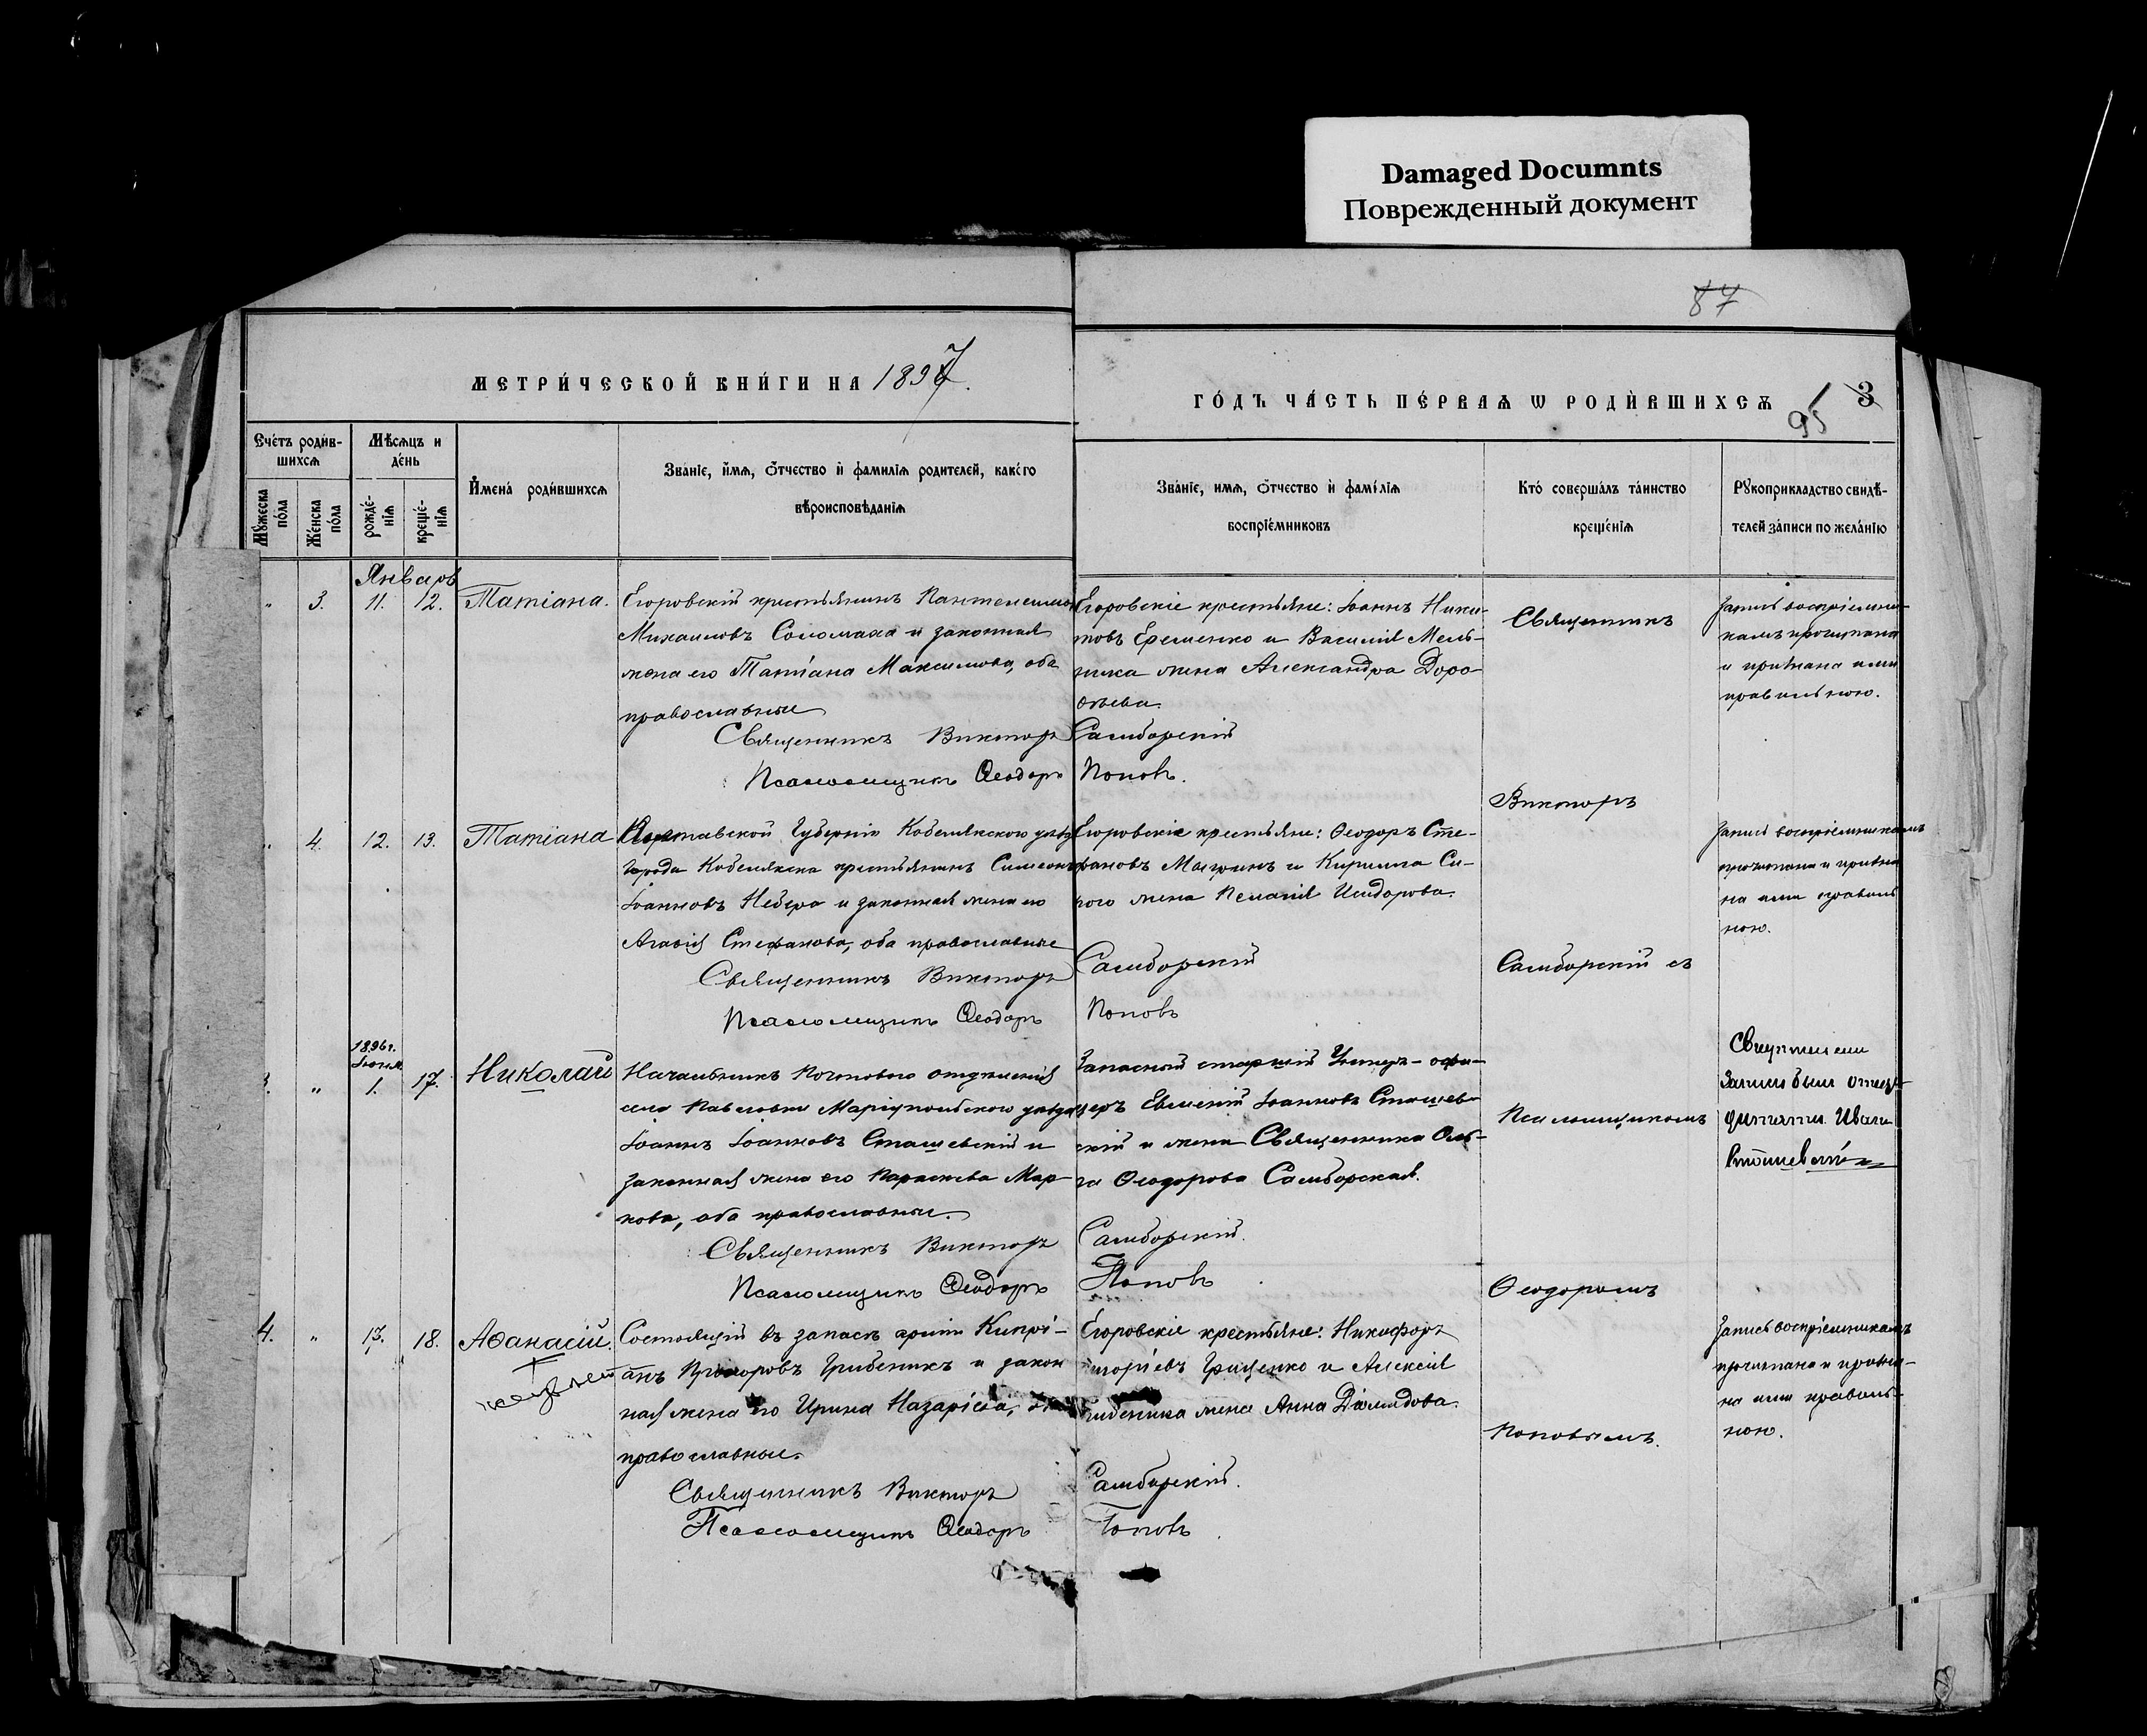 Damaged Documnts
Поврежденный документ
87
МЕТРИ́ЧЕСКОЙ КНИ́ГИ НА 1897.
ГО́ДЪ ЧА́СТЬ ПЕ́РВАѦ Ѡ РОДИ́ВШИХСѦ
95
3
Счéтъ роди́в-
шихсѧ
Мѣсѧцъ и
дéнь
Мꙋ́жеска
по́ла
Же́нска
по́ла
рождé-
нїѧ
крещé-
нїѧ
Имена́ роди́вшихсѧ
Зва́нїе, и́мѧ, ѻ́тчество и фамилїѧ родителей, како́го
вѣроисповѣданїѧ
Зва́нїе, имѧ, ѻ́тчество и фамі́лїѧ
воспрїе́мниковъ
Кто́ соверша́лъ та́инство
креще́нїѧ
Рꙋкоприкладство свидѣ-
телей за́писи по жела́нїю
Январь
" 3. 11. 12. Татіана.
Егоровскій крестьянинъ Пантелеимо
Михаиловъ Соломаха и законная
жена его Татіана Максимова, оба
православные
Священникъ Викторъ Самборскій
Псаломщикъ Ѳеодоръ Поповъ.
Егоровскіе крестьяне: Іоаннъ Ники-
товъ Еременко и Василія Мель-
ника жена Александра Доро-
ѳеева.
Священникъ
Запись воспріемни-
камъ прочитана
и признана ими
правильною.
Викторъ
" 4. 12. 13. Татіана
Полтавской Губерніи Кобелякскаго уѣзда
города Кобеляка крестьянинъ Симеонъ
Іоанновъ Небера и законная жена его
Агаѳія Стефанова, оба православные
Священникъ Викторъ Самборскій
Псаломщикъ Ѳеодоръ Поповъ
Егоровскіе крестьяне: Ѳеодоръ Сте-
фановъ и Кирилла Си-
жена Исидорова.
Самборскій съ
Запись воспріемникамъ
прочитана и призна
на ими правиль
ною.
1896 г.
3. " 1. 17. Николай
Начальникъ Почтоваго отдѣленія
села Павловки Маріупольскаго уѣзда
Іоаннъ Іоанновъ Сташевскій и
законная жена его Параскева Мар-
кова, оба православные.
Священникъ Викторъ Самборскій.
Псаломщикъ Ѳеодоръ Поповъ
Запасный старшій Унтеръ-офи-
церъ Евгеній Іоанновъ Сташев-
скій и жена Священника Оль-
га Ѳеодорова Самборская.
Псаломщикомъ
записи былъ отецъ
дитяти Иванъ
Сташевскій
Ѳеодоромъ
4. " 17. 18. Аѳанасій.
Состоящій въ запасѣ арміи Кипрі-
анъ Прохоровъ Грибеникъ и закон
ная жена его Ирина Назаріева,
православные.
Священникъ Викторъ Самборскій.
Псаломщикъ Ѳеодоръ Поповъ
Егоровскіе крестьяне: Никифоръ
Грищенко и Алексія
жена Анна Діомидова.
Поповымъ.
Запись воспріемникамъ
прочитана и призна-
на ими правиль-
ною.